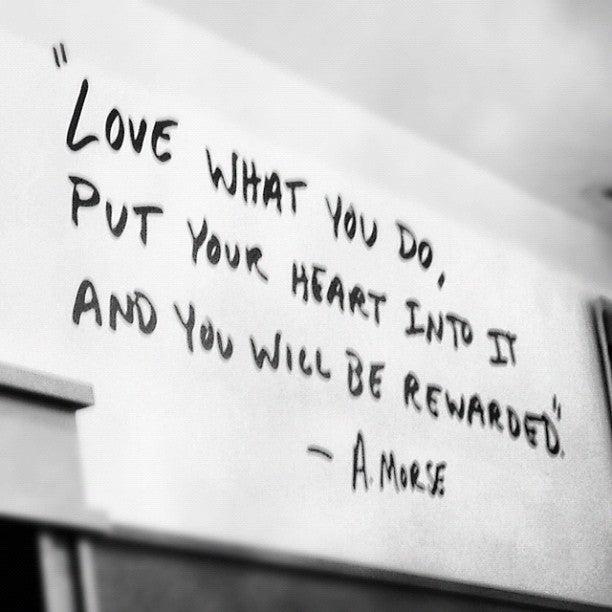 "LOVE WHAT YOU DO,
PUT YOUR HEART INTO IT
AND YOU WILL BE REWARDED."
- A. MORSE